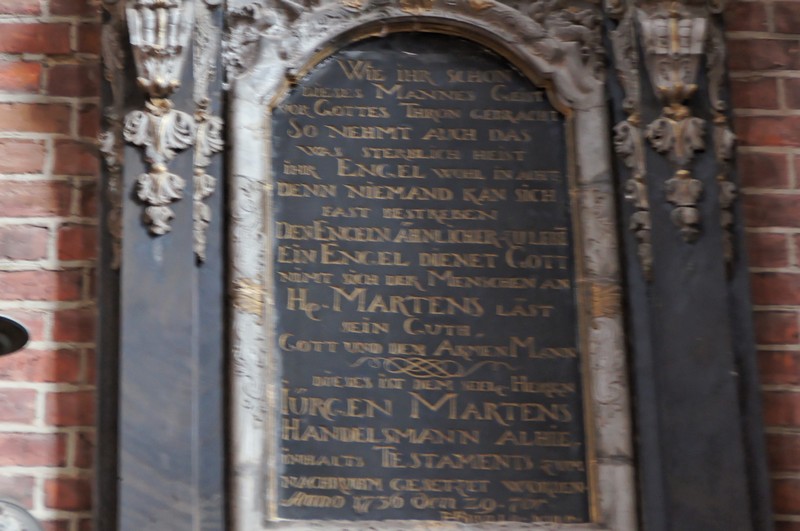 WIE IHR SCHON
DIESES MANNES GEIST
VOR GOTTES THRON GEBRACHT
SO NEHMT AUCH DAS
WAS STERBLICH HEIST
IHR ENGEL WOHL IN ACHT
DENN NIEMAND KAN SICH
FAST BESTREBEN
DEN ENGELN ÄHNLICHER ZU LEBE
EIN ENGEL DIENET GOTT
NIMT SICH DER MENSCHEN AN
Hc. MARTENS LÄST
SEIN GUTH
GOTT UND DEM ARMEN MANN
DIESES IST DEM SEEL. HERREN
JÜRGEN MARTENS
HANDELSMANN ALHIE
INHALTS TESTAMENTS ZUM
NACHRUHM GESETZET WORDEN
ANNO 1736 DEN 29